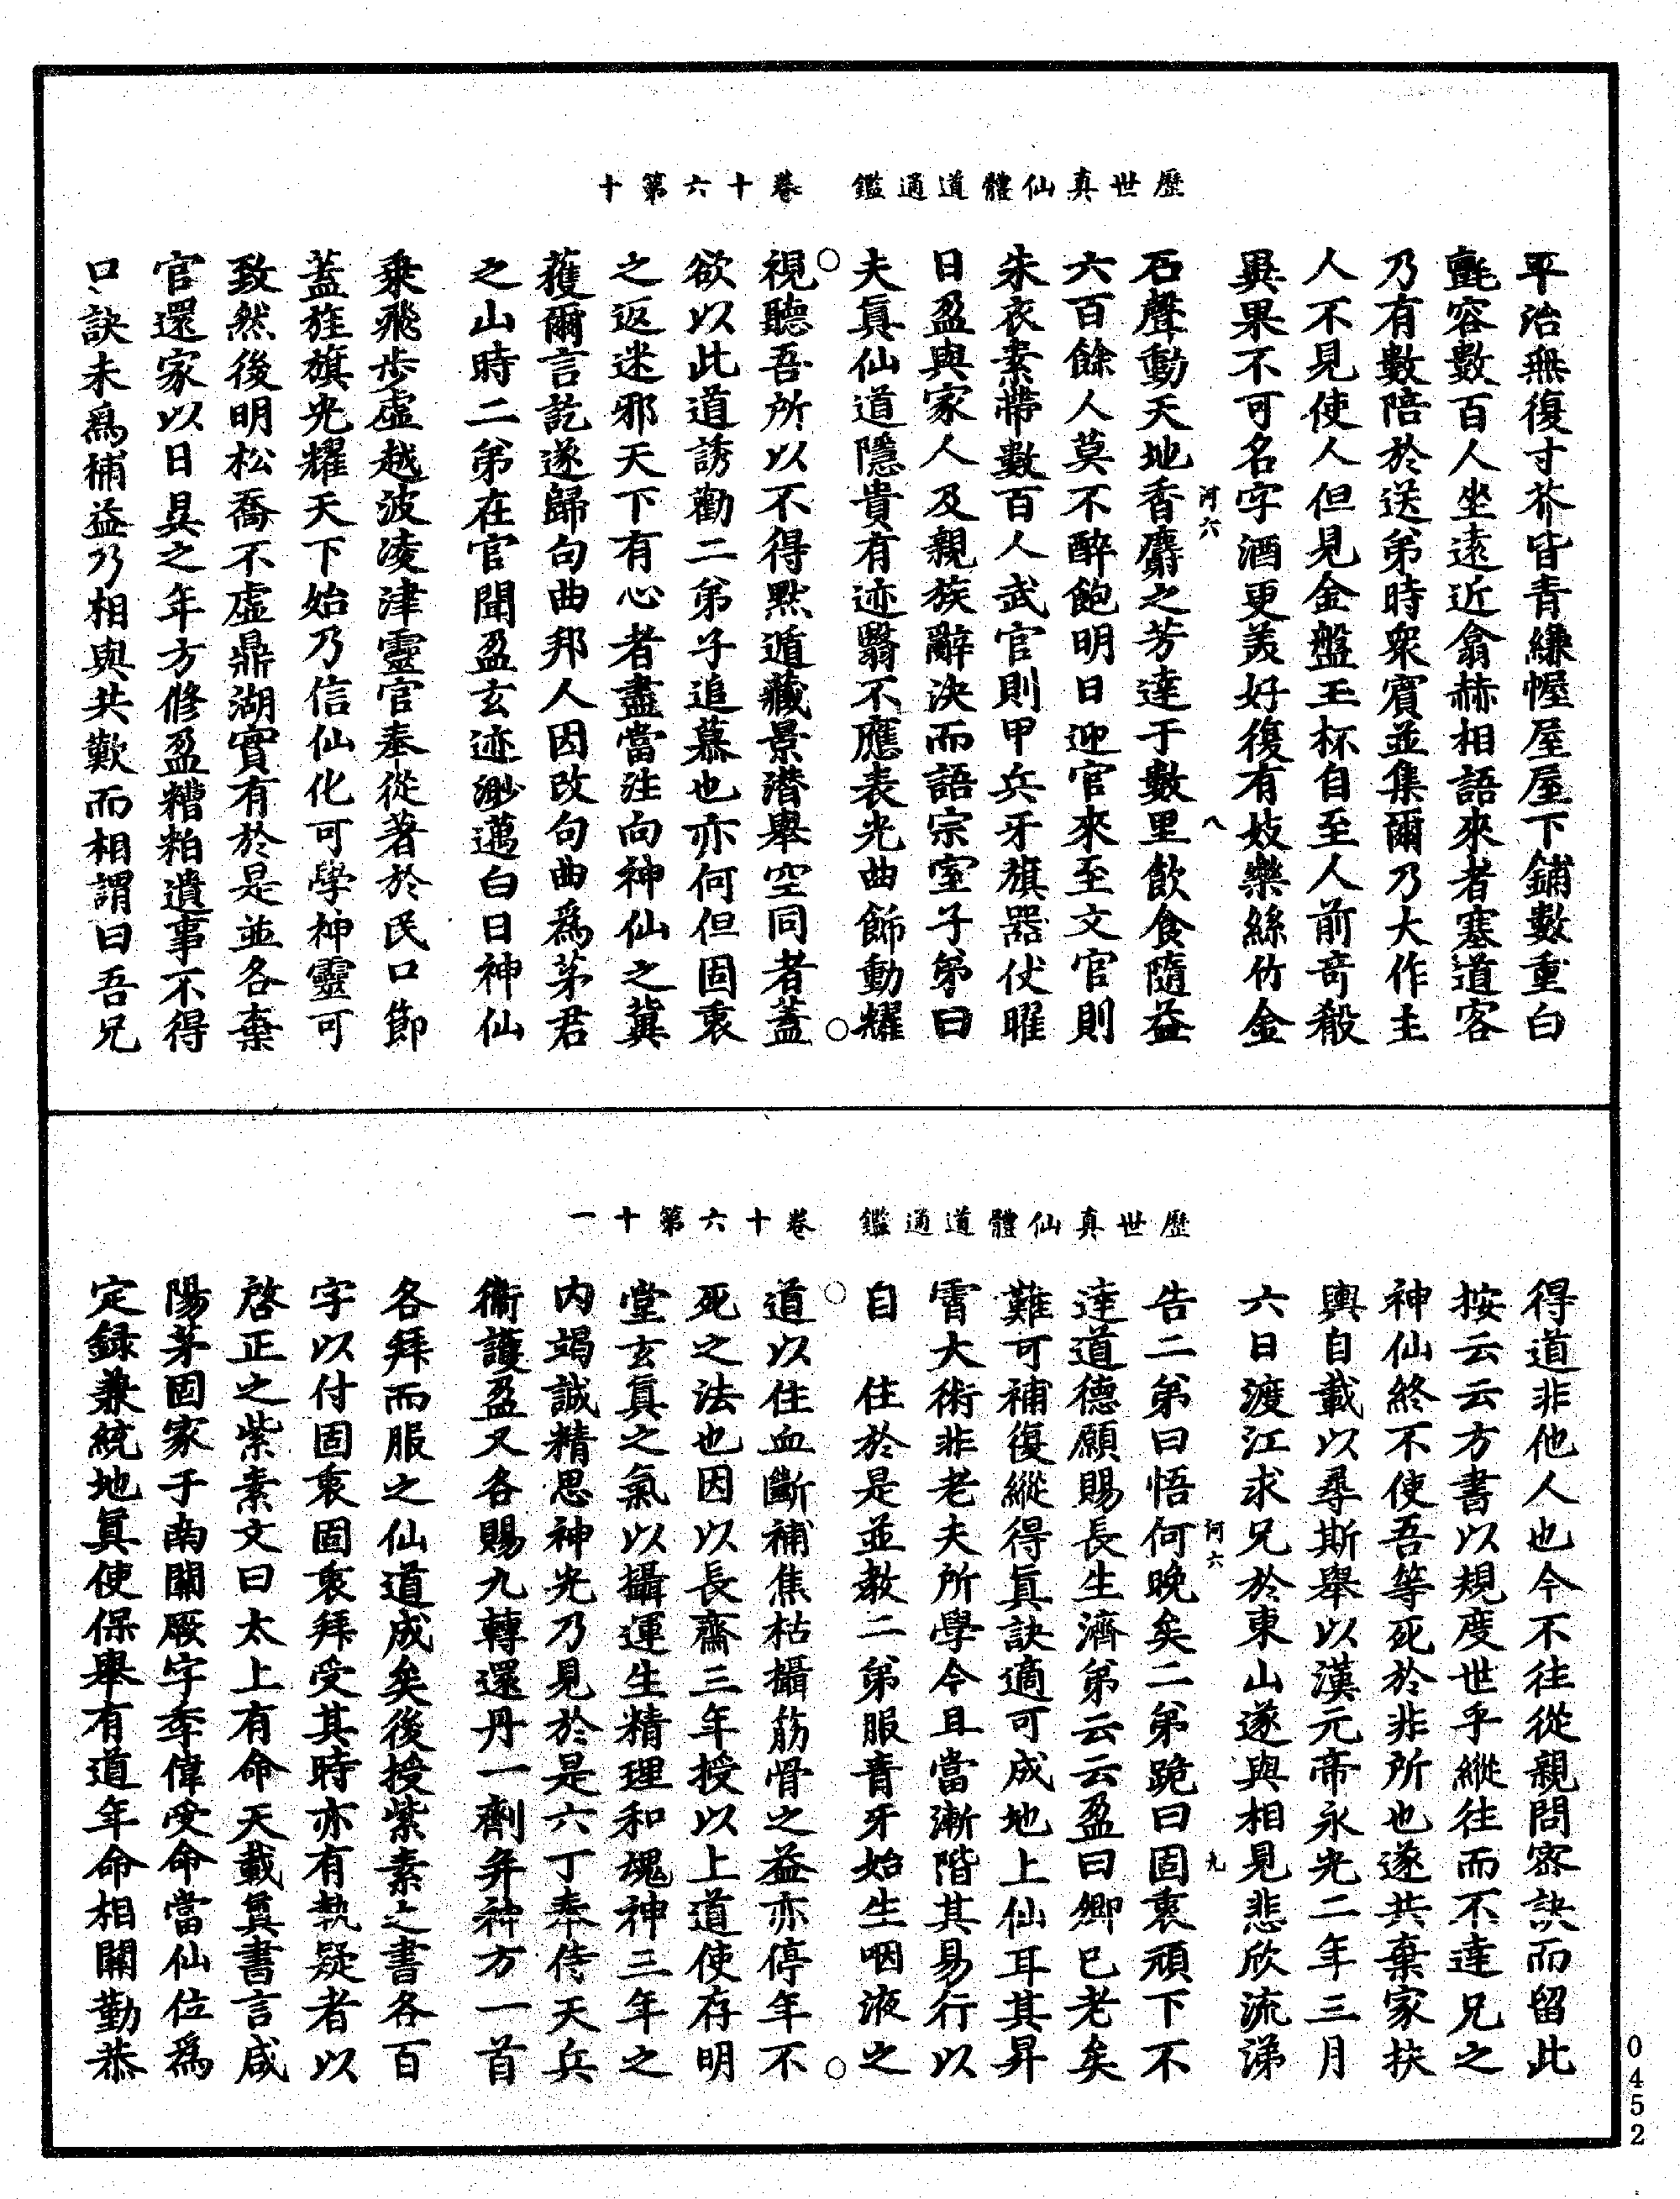 歷世真仙體道通鑑　卷十六第十
平治無復寸芥皆青縑幄屋屋下鋪數重白
氈容數百人坐遠近翕赫相語來者塞道客
乃有數陪於送弟時衆賓並集爾乃大作主
人不見使人但見金盤玉杯自至人前奇殽
異果不可名字酒更美好復有妓樂絲竹金
石聲動天地香麝之芳達于數里飲食隨益
六百餘人莫不醉飽明日迎官來至文官則
朱衣素帶數百人武官則甲兵牙旗器仗曜
日盈與家人及親族辭決而語宗室子弟曰
夫眞仙道隱貴有迹翳不應表光曲飾動耀
視聽吾所以不得默遁藏景潛舉空同者蓋
欲以此道誘勸二弟子追慕也亦何但固衷
之返迷邪天下有心者盡當注向神仙之冀
蒦爾言訖遂歸句曲邦人因改句曲爲茅君
之山時二弟在官聞盈玄迹渺邁白日神仙
乘飛步虛越波凌津靈官奉從著於民口節
蓋旌旗光耀天下始乃信仙化可學神靈可
致然後明松喬不虛鼎湖實有於是並各棄
官還家以日昃之年方修盈糟粕遺事不得
口訣未爲補益乃相與共歎而相謂曰吾兄
河六
八
歷世真仙體道通鑑　卷十六第十一
得道非他人也今不往從親問密訣而留此
按云云方書以規度世乎縱往而不達兄之
神仙終不使吾等死於非所也遂共棄家扶
輿自載以尋斯舉以漢元帝永光二年三月
六日渡江求兄於東山遂與相見悲欣流涕
告二弟曰悟何晚矣二弟跪曰固衷頑下不
達道德願賜長生濟弟云云盈曰卿已老矣
難可補復縱得眞訣適可成地上仙耳其昇
霄大術非老夫所學今且當漸階其易行以
自　住於是並教二弟服青牙始生咽液之
道以住血斷補焦枯攝筋骨之益亦停年不
死之法也因以長齋三年授以上道使存明
堂玄眞之氣以攝運生精理和魂神三年之
内竭誠精思神光乃見於是六丁奉侍天兵
衞護盈又各賜九轉還丹一劑并神方一首
各拜而服之仙道成矣後授紫素之書各百
字以付固衷固衷拜受其時亦有執疑者以
啓正之紫素文曰太上有命天載眞書言咸
陽茅固家于南關厥字季偉受命當仙位爲
定録兼統地眞使保舉有道年命相關勤恭
河六
九
0452